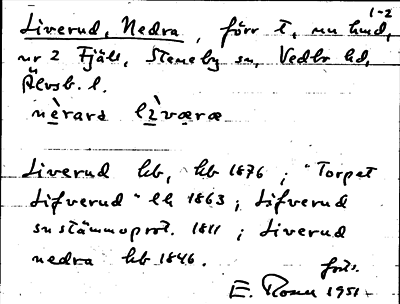 1-2
Liverud, Nedra, förr t, nu hmd,
nr 2 Fjäll, Steneby sn, Vedbo hd,
Älvsb. l.
nèrara lìværæ
Liverud hb, hb 1876; "Torpet
Lifverud" lh 1863; Lifverud
sustämmoprot. 1811; Liverud
nedra hb 1846.
forts.
E. Rosell 1951